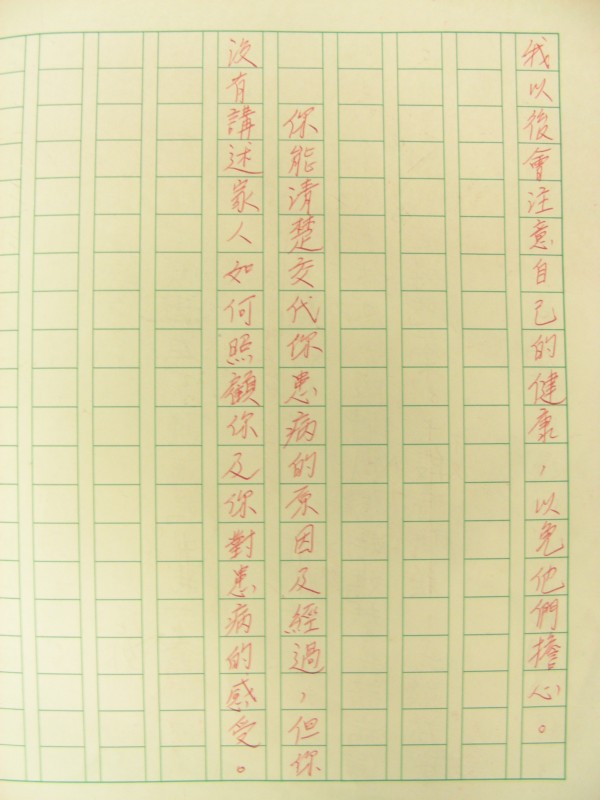 我以後會注意自己的健康，以免他們擔心。
你能清楚交代你患病的原因及經過，但你
沒有講述家人如何照顧你及你對患病的感受。